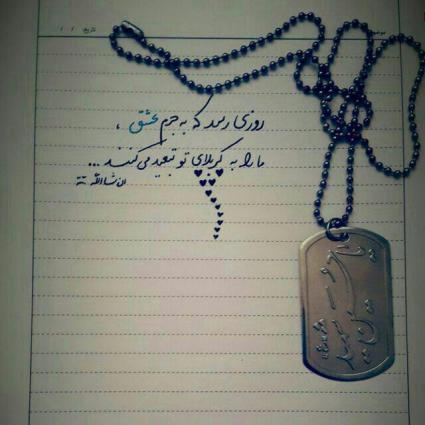 موضوع
تاریخ: / /
روزی رسد که به جرم عشق ،
ما را به کربلای تو تبعید می کنند ...
ان شاالله